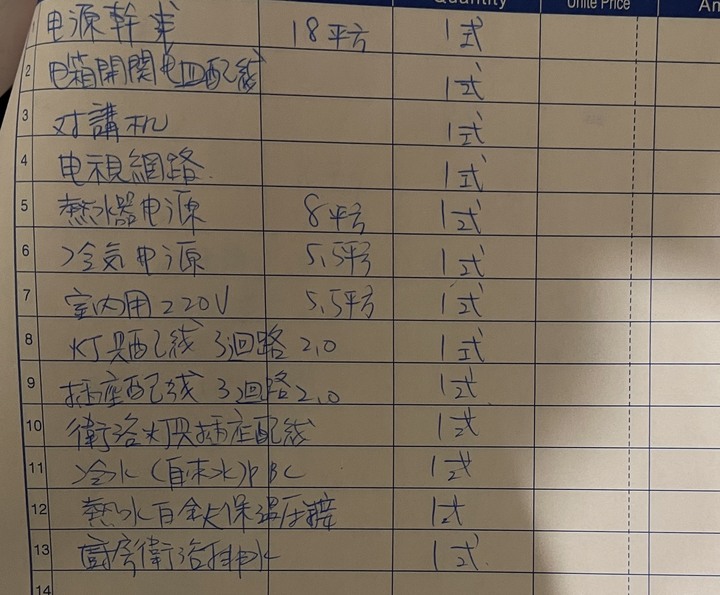 Quantity Unite Price Am
电源幹線 18平方 1式
2 电箱開関电皿配綫 1式
3 对講机 1式
4 电視網路 1式
5 熱水器电源 8平方 1式
6 冷気电源 5.5平方 1式
7 室内用220V 5.5平方 1式
8 灯具配綫 3迴路 2.0 1式
9 插座配綫 3迴路 2.0 1式
10 衛浴灯具插座配綫 1式
11 冷水(自来水)PBC 1式
12 熱水白鉄保温压接 1式
13 廚房衛浴排水 1式
14